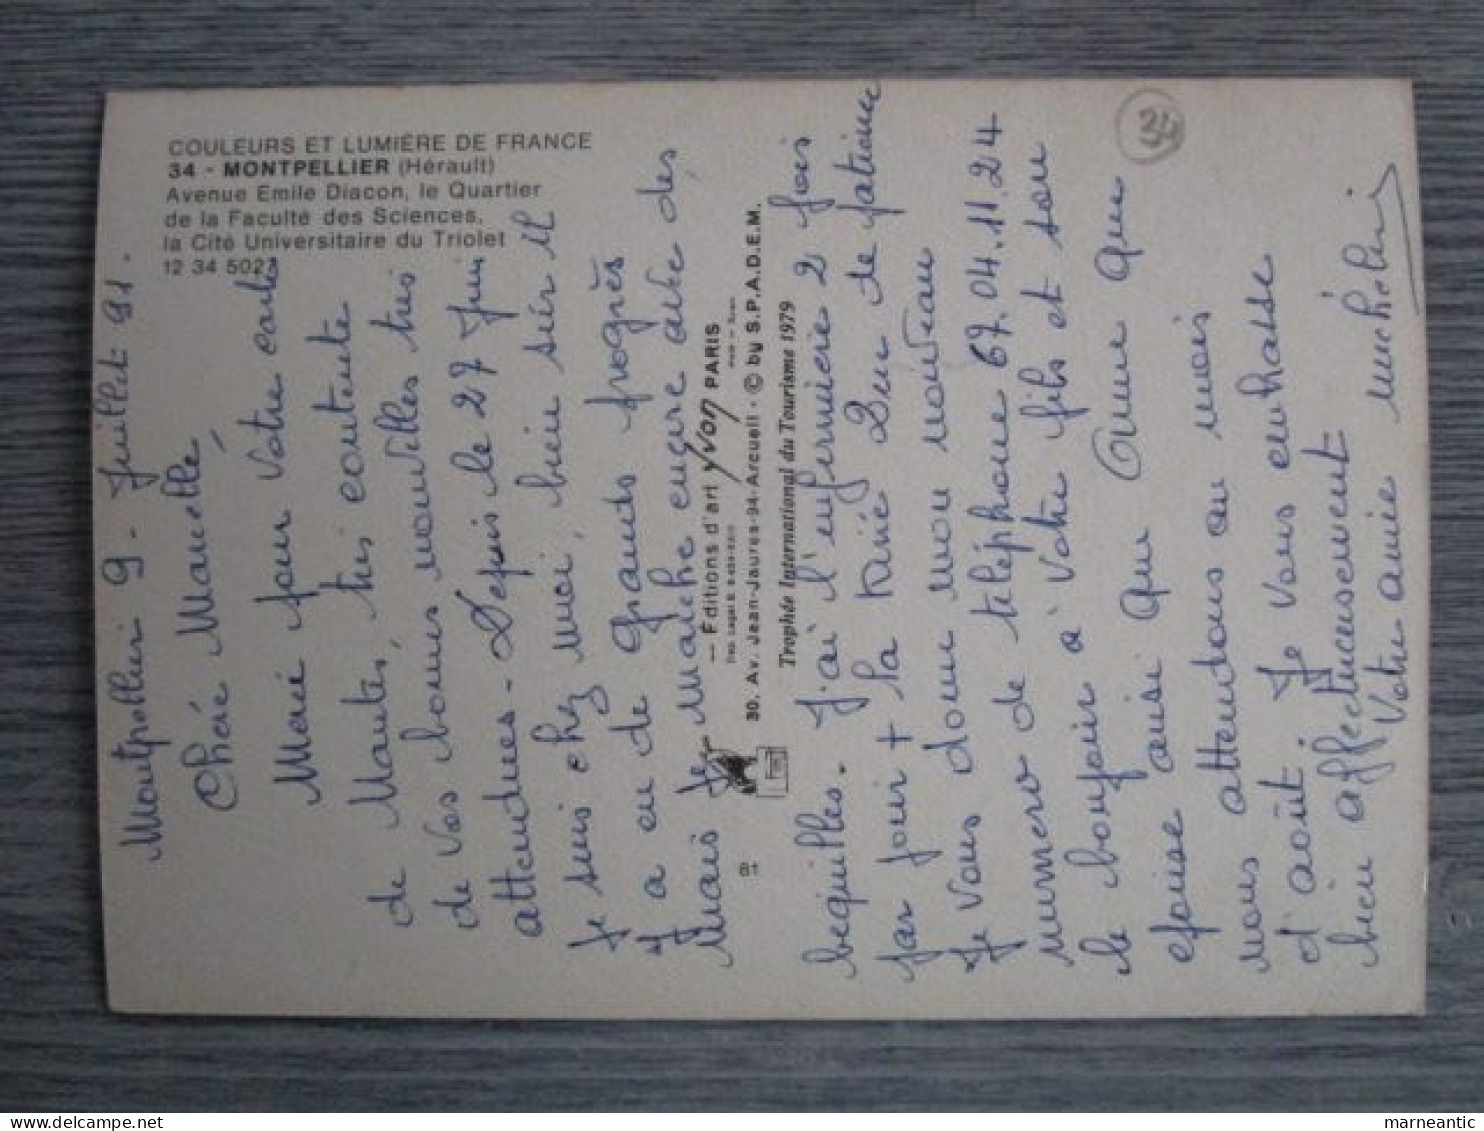 COULEURS ET LUMIÈRE DE FRANCE
34 - MONTPELLIER (Hérault)
Avenue Emile Diacon, le Quartier
de la Faculté des Sciences,
la Cité Universitaire du Triolet
12 34 5027
Montpellier 9 - Juillet 91.
Chère Marcelle,
Merci pour Votre carte
de Mantes, très contente
de Vos bonnes nouvelles très
attendues - Depuis le 27 Juin
Je suis chez moi, bien sûr Il
y a eu de Grands progrès
Mais Je Marche encore avec des,
— Editions d'art YVON PARIS
30, Av. Jean-Jaurès-94-Arcueil - © by S.P.A.D.E.M.
Trophée International du Tourisme 1979
81
bequilles. J'ai l'infirmière 2 fois
par jour + la Kiné Que de patience
Je Vous donne mon nouveau
numero de téléphone 67.04.11.24
le bonjour à Votre fils et son
epouse ainsi que Anne que
nous attendons au mois
d'août. Je vous embrasse
bien affectueusement
Votre amie
34
marneantic